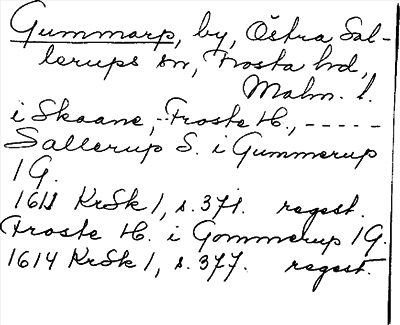 Gummarp, by, Östra Sal-
lerups sn, Frosta hd,
Malm. l.
i Skaane, -- Froste H., -----
Sallerup S. i Gummerup
1 G.
1611 KrSk 1, s. 371. regest.
Froste H. i Gommerup 1 G.
1614 KrSk 1, s. 377. regest.